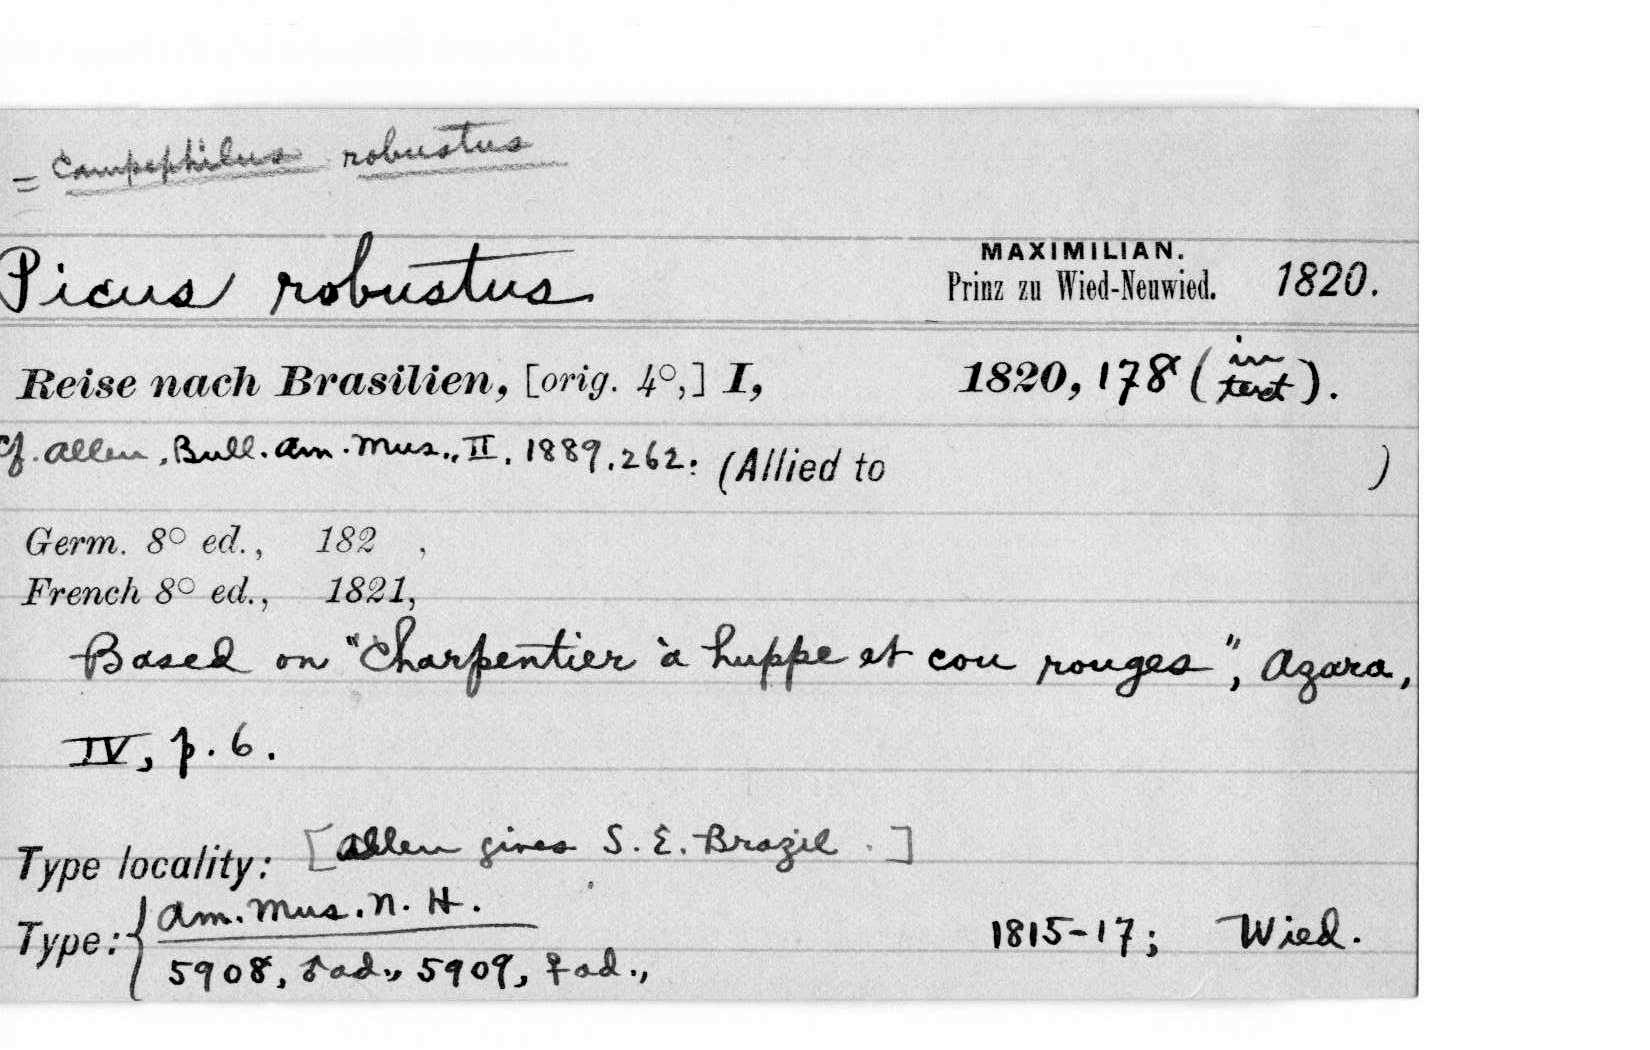 = Campephilus robustus
Picus robustus MAXIMILIAN. Prinz zu Wied-Neuwied. 1820.
Reise nach Brasilien, [orig. 4°,] I, 1820, 178 (in text).
Cf. Allen, Bull. Am. Mus., II, 1889, 262: (Allied to )
Germ. 8° ed., 182 ,
French 8° ed., 1821,
Based on "Charpentier à huppe et cou rouges", Azara,
IV, p. 6.
Type locality: [Allen gives S. E. Brazil . ]
Type: { Am. Mus. N. H.
5908, ♂ ad., 5909, ♀ ad., 1815-17; Wied.